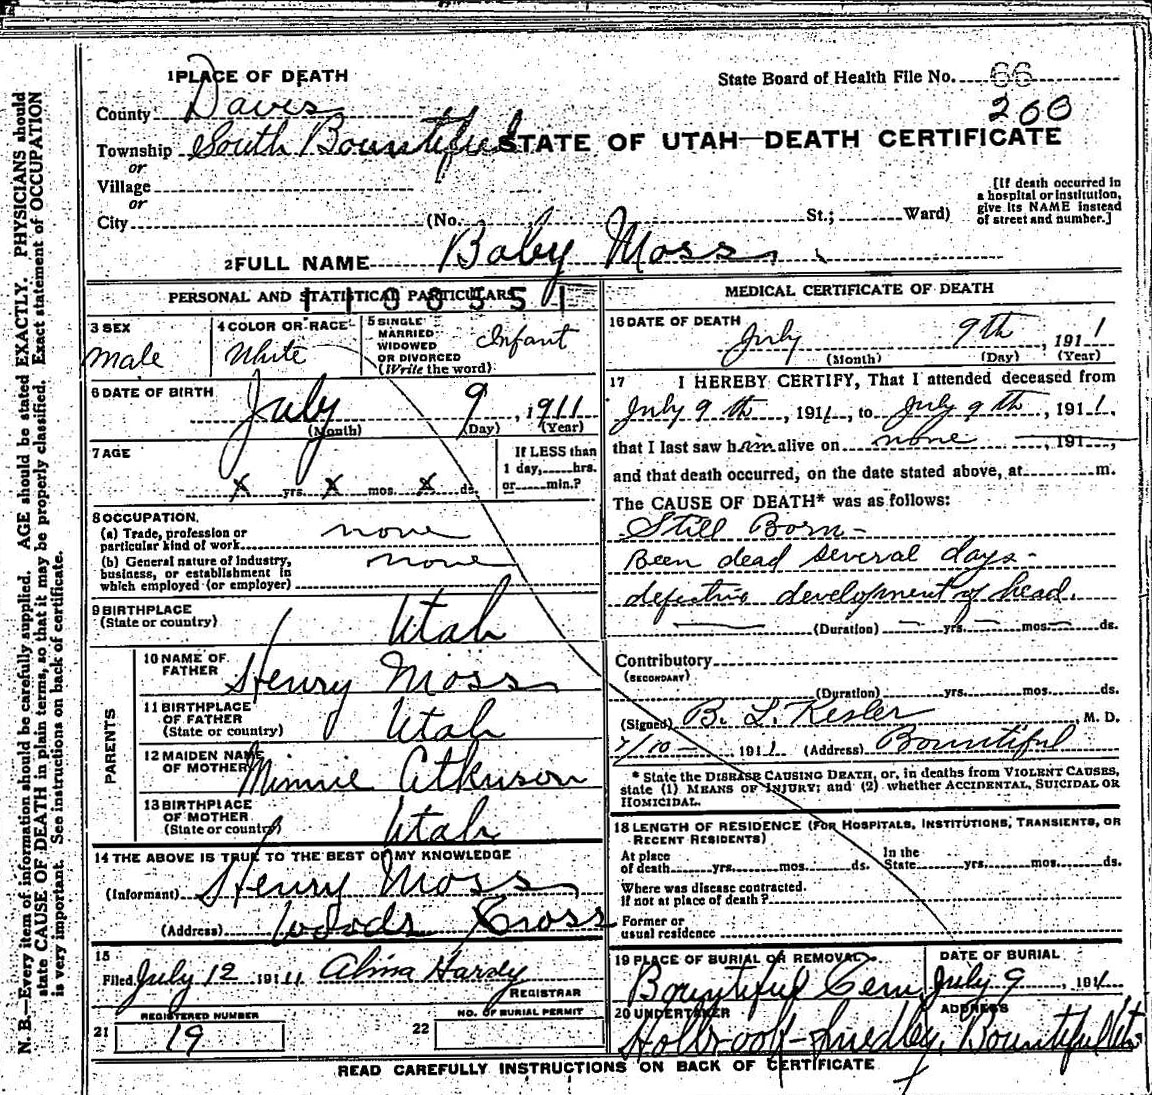 1 PLACE OF DEATH
State Board of Health File No. 66
County Davis
200
Township South Bountiful
STATE OF UTAH—DEATH CERTIFICATE
or
Village
or
City (No. St.; Ward)
[If death occurred in
a hospital or institution,
give its NAME instead
of street and number.]
2 FULL NAME Baby Moss
PERSONAL AND STATISTICAL PARTICULARS
3 SEX
Male
4 COLOR OR RACE
White
5 SINGLE
MARRIED
WIDOWED
OR DIVORCED
(Write the word)
Infant
6 DATE OF BIRTH
July 9, 1911
(Month) (Day) (Year)
7 AGE
If LESS than
1 day, hrs.
or min.?
X yrs. X mos. X ds.
8 OCCUPATION
(a) Trade, profession or
particular kind of work none
(b) General nature of industry,
business, or establishment in
which employed (or employer) none
9 BIRTHPLACE
(State or country) Utah
PARENTS
10 NAME OF
FATHER Henry Moss
11 BIRTHPLACE
OF FATHER
(State or country) Utah
12 MAIDEN NAME
OF MOTHER Minnie Atkinson
13 BIRTHPLACE
OF MOTHER
(State or country) Utah
14 THE ABOVE IS TRUE TO THE BEST OF MY KNOWLEDGE
(Informant) Henry Moss
(Address) Woods Cross
15
Filed July 12 1911 Alma Hardy
REGISTRAR
REGISTERED NUMBER
21 19
NO. OF BURIAL PERMIT
22
MEDICAL CERTIFICATE OF DEATH
16 DATE OF DEATH
July 9th, 1911
(Month) (Day) (Year)
17 I HEREBY CERTIFY, That I attended deceased from
July 9th, 1911, to July 9th, 1911,
that I last saw him alive on none, 191 ,
and that death occurred, on the date stated above, at m.
The CAUSE OF DEATH* was as follows:
Still Born -
Been dead several days -
defective development of head.
(Duration) — yrs. — mos. — ds.
Contributory
(SECONDARY)
(Duration) yrs. mos. ds.
(Signed) B. L. Kesler, M. D.
7/10 - 1911 (Address) Bountiful
* State the DISEASE CAUSING DEATH, or, in deaths from VIOLENT CAUSES,
state (1) MEANS OF INJURY; and (2) whether ACCIDENTAL, SUICIDAL OR
HOMICIDAL.
18 LENGTH OF RESIDENCE (FOR HOSPITALS, INSTITUTIONS, TRANSIENTS, OR
RECENT RESIDENTS)
At place
of death yrs. mos. ds.
In the
State yrs. mos. ds.
Where was disease contracted
if not at place of death?
Former or
usual residence
19 PLACE OF BURIAL OR REMOVAL
Bountiful Cem
DATE OF BURIAL
July 9, 1911
20 UNDERTAKER
ADDRESS
Holbrook-Smedley, Bountiful Ut.
READ CAREFULLY INSTRUCTIONS ON BACK OF CERTIFICATE
N. B.—Every item of information should be carefully supplied. AGE should be stated EXACTLY. PHYSICIANS should
state CAUSE OF DEATH in plain terms, so that it may be properly classified. Exact statement of OCCUPATION
is very important. See instructions on back of certificate.